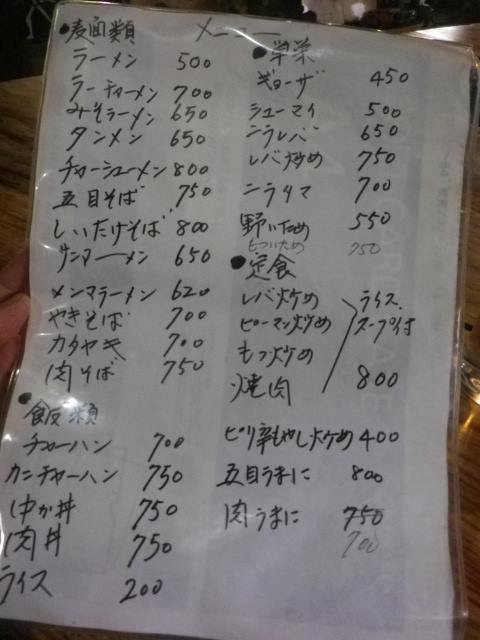 メニュー
●麦面類
ラーメン 500
ラーチャーメン 700
みそラーメン 650
タンメン 650
チャーシューメン 800
五目そば 750
しいたけそば 800
サンマーメン 650
メンマラーメン 620
やきそば 700
カタヤキ 700
肉そば 750
●飯類
チャーハン 700
カニチャーハン 750
中か丼 750
肉丼 750
ライス 200
●単菜
ギョーザ 450
シューマイ 500
ニラレバ 650
レバ炒め 750
ニラタマ 700
野いため 550
もついため 750
●定食
レバ炒め
ピーマン炒め
もつ炒め
焼肉
ライス.
スープ付
800
ピリ辛もやし炒め 400
五目うまに 800
肉うまに 750
700